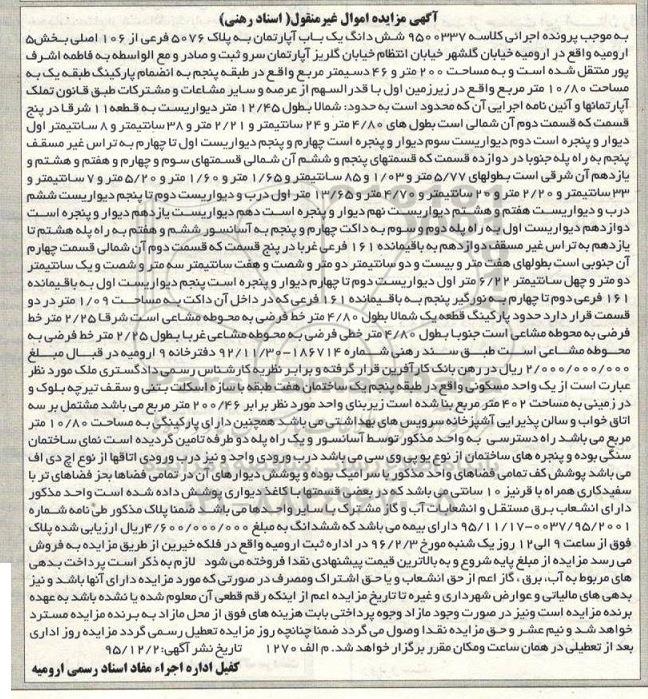 آگهی مزایده اموال غیرمنقول( اسناد رهنی)
به موجب پرونده اجرائی کلاسه ۹۵۰۰۳۳۷ شش دانگ یک باب آپارتمان به پلاک ۵۰۷۶ فرعی از ۱۰۶ اصلی بخش۵
ارومیه واقع در ارومیه خیابان گلشهر خیابان انتظام خیابان گلریز آپارتمان سرو ثبت و صادر و مع الواسطه به فاطمه اشرف
پور منتقل شده است و به مساحت ۲۰۰ متر و ۴۶ دسیمتر مربع واقع در طبقه پنجم به انضمام پارکینگ طبقه یک به
مساحت ۱۰/۸۰ متر مربع واقع در زیرزمین اول با قدرالسهم از عرصه و سایر مشاعات و مشترکات طبق قانون تملک
آپارتمانها و آئین نامه اجرایی آن که محدود است به حدود: شمالا بطول ۱۲/۴۵ متر دیواریست به قطعه۱۱ شرقا در پنج
قسمت که قسمت دوم آن شمالی است بطول های ۴/۸۰ متر و ۲۴ سانتیمتر و ۲/۲۱ متر و ۳۸ سانتیمتر و ۸ سانتیمتر اول
دیوار و پنجره است دوم دیواریست سوم دیوار و پنجره است چهارم و پنجم دیواریست اول تا چهارم به تراس غیر مسقف
پنجم به راه پله جنوبا در دوازده قسمت که قسمتهای پنجم و ششم آن شمالی قسمتهای سوم و چهارم و هفتم و هشتم و
یازدهم آن شرقی است بطولهای ۵/۷۷ متر و ۱/۰۳ و ۸۵ سانتیمتر و ۱/۶۵ متر و ۱/۶۰ متر و ۵/۲۰ متر و ۷ سانتیمتر و
۳۳ سانتیمتر و ۲/۲۰ متر و ۲۰ سانتیمتر و ۴/۷۰ متر و ۱۳/۶۵ متر اول درب و دیواریست دوم تا پنجم دیواریست ششم
درب و دیواریست هفتم و هشتم دیواریست نهم دیوار و پنجره است دهم دیواریست یازدهم دیوار و پنجره است
دوازدهم دیواریست اول به راه پله دوم و سوم به داکت چهارم و پنجم به آسانسور ششم و هفتم به راه پله هشتم تا
یازدهم به تراس غیر مسقف دوازدهم به باقیمانده ۱۶۱ فرعی غربا در پنج قسمت که قسمت دوم آن شمالی قسمت چهارم
آن جنوبی است بطولهای هفت متر و بیست و دو سانتیمتر دو متر و شصت و هفت سانتیمتر سه متر و شصت و یک سانتیمتر
دو متر و چهل سانتیمتر ۶/۲۲ متر اول دیواریست دوم تا چهارم دیوار و پنجره است پنجم دیواریست اول به باقیمانده
۱۶۱ فرعی دوم تا چهارم به نورگیر پنجم به باقیمانده ۱۶۱ فرعی که در داخل آن داکت به مساحت ۱/۰۹ متر در دو
قسمت قرار دارد حدود پارکینگ قطعه یک شمالا بطول ۴/۸۰ متر خط فرضی به محوطه مشاعی است شرقا ۲/۲۵ متر خط
فرضی به محوطه مشاعی است جنوبا بطول ۴/۸۰ متر خطی فرضی به محوطه مشاعی غربا بطول ۲/۲۵ متر خط فرضی به
محوطه مشاعی است طبق سند رهنی شماره ۱۸۶۷۱۴-۹۲/۱۱/۳۰ دفترخانه ۹ ارومیه در قبال مبلغ
۲/۰۰۰/۰۰۰/۰۰۰ ریال در رهن بانک کارآفرین قرار گرفته و برابر نظریه کارشناس رسمی دادگستری ملک مورد نظر
عبارت است از یک واحد مسکونی واقع در طبقه پنجم یک ساختمان هفت طبقه با سازه اسکلت بتنی و سقف تیرچه بلوک و
در زمینی به مساحت ۴۰۲ متر مربع بنا شده است زیربنای واحد مورد نظر برابر ۲۰۰/۴۶ متر مربع می باشد مشتمل بر سه
اتاق خواب و سالن پذیرایی آشپزخانه سرویس های بهداشتی می باشد همچنین دارای پارکینگی به مساحت ۱۰/۸۰ متر
مربع می باشد راه دسترسی به واحد مذکور توسط آسانسور و یک راه پله دو طرفه تامین گردیده است نمای ساختمان
سنگی بوده و پنجره های ساختمان از نوع یو پی وی سی می باشد درب ورودی واحد و نیز درب ورودی اتاقها از نوع اچ دی اف
می باشد پوشش کف تمامی فضاهای واحد مذکور با سرامیک بوده و پوشش دیوارهای آن در تمامی فضاها بجز فضاهای تر با
سفیدکاری همراه با قرنیز ۱۰ سانتی می باشد که در بعضی قسمتها با کاغذ دیواری پوشش داده شده است واحد مذکور
دارای انشعاب برق مستقل و انشعابات آب و گاز مشترک با سایر واحدها می باشد ضمنا پلاک مذکور طی نامه شماره
۹۵/۱۱/۱۷-۰۰۳۷/۹۵/۲۰۰۱ دارای بیمه می باشد که ششدانگ به مبلغ ۴/۶۰۰/۰۰۰/۰۰۰ریال ارزیابی شده پلاک
فوق از ساعت ۹ الی۱۲ روز یک شنبه مورخ ۹۶/۲/۳ در اداره ثبت ارومیه واقع در فلکه خیرین از طریق مزایده به فروش
می رسد مزایده از مبلغ پایه شروع و به بالاترین قیمت پیشنهادی نقدا فروخته می شود لازم به ذکر است پرداخت بدهی
های مربوط به آب، برق ، گاز اعم از حق انشعاب و یا حق اشتراک ومصرف در صورتی که مورد مزایده دارای آنها باشد و نیز
بدهی های مالیاتی و عوارض شهرداری و غیره تا تاریخ مزایده اعم از اینکه رقم قطعی آن معلوم شده یا نشده باشد به عهده
برنده مزایده است ونیز در صورت وجود مازاد وجوه پرداختی بابت هزینه های فوق از محل مازاد به برنده مزایده مسترد
خواهد شد و نیم عشر و حق مزایده نقدا وصول می گردد ضمنا چنانچه روز مزایده تعطیل رسمی گردد مزایده روز اداری
بعد از تعطیلی در همان ساعت ومکان مقرر برگزار خواهد شد. م الف ۱۲۷۰ تاریخ نشر آگهی:۹۵/۱۲/۲
کفیل اداره اجراء مفاد اسناد رسمی ارومیه